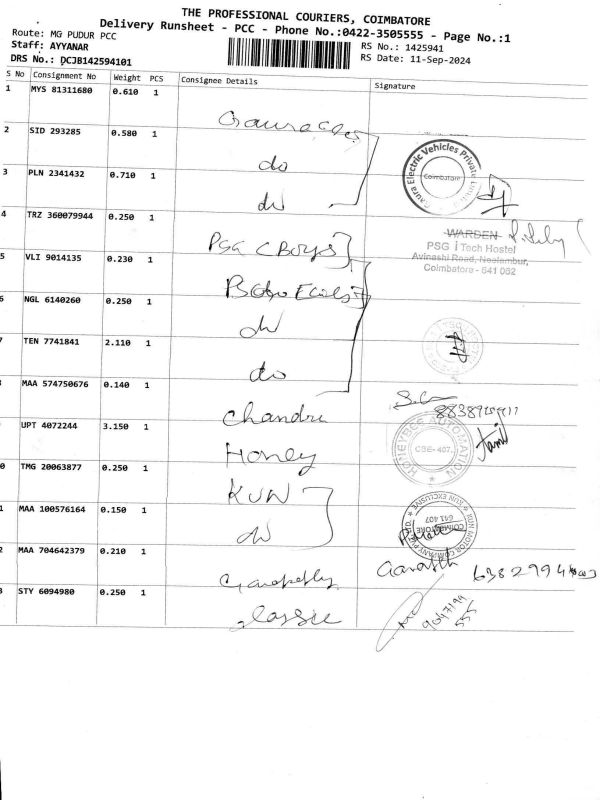 THE PROFESSIONAL COURIERS, COIMBATORE
Delivery Runsheet - PCC - Phone No.:0422-3505555 - Page No.:1
Route: MG PUDUR PCC
Staff: AYYANAR
DRS No.: DCJB142594101
RS No.: 1425941
RS Date: 11-Sep-2024
S No Consignment No Weight PCS Consignee Details Signature
1 MYS 81311680 0.610 1
2 SID 293285 0.580 1 do
3 PLN 2341432 0.710 1 do
Coimbatore
4 TRZ 360079944 0.250 1 PSG (Boys)
WARDEN
PSG iTech Hostel
Avinashi Road, Neelambur,
Coimbatore - 641 062
5 VLI 9014135 0.230 1
6 NGL 6140260 0.250 1 do
7 TEN 7741841 2.110 1 do
MAA 574750676 0.140 1 Chandra
UPT 4072244 3.150 1 Honey
HONEYBEE AUTOMATION
CBE-407.
0 TMG 20063877 0.250 1 KUN
1 MAA 100576164 0.150 1 do
KUN EXCLUSIVE
KUN MOTOR COMPANY
COIMBATORE
641 407
2 MAA 704642379 0.210 1
STY 6094980 0.250 1